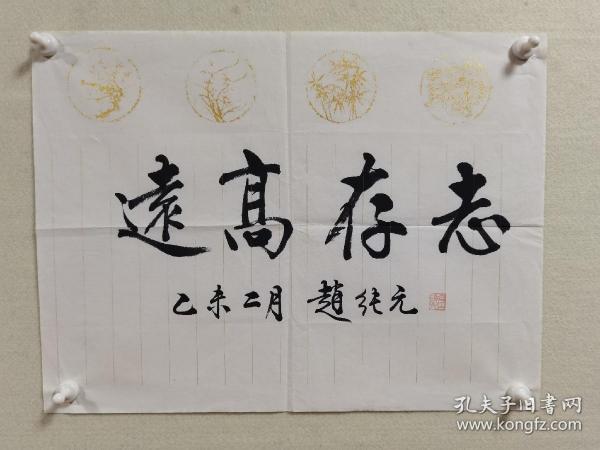 志存高遠
乙未二月 趙純元
孔夫子旧書网
www.kongfz.com